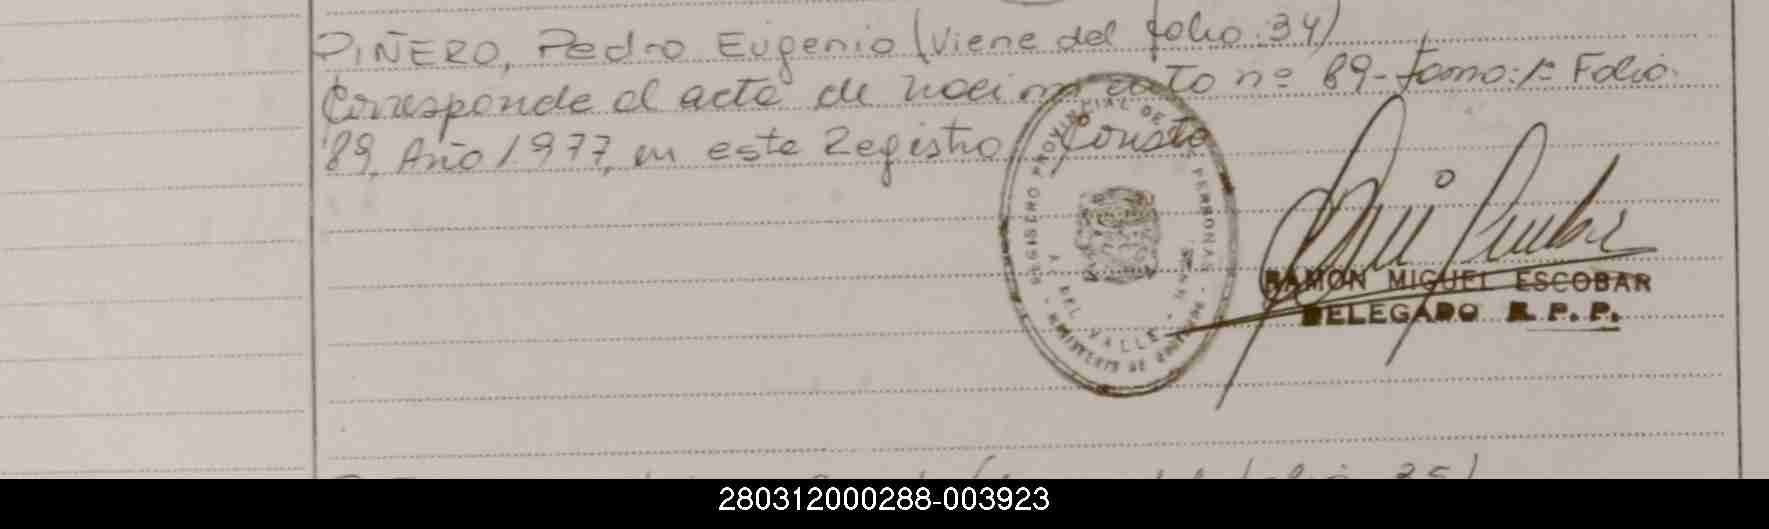 PIÑERO, Pedro Eugenio (Viene del folio: 34)
Corresponde al acta de nacimiento nº 89 - Tomo: 1º Folio:
89, Año 1977, en este Registro. Conste
REGISTRO PROVINCIAL DE PERSONAS
DEL VALLE
RAMON MIGUEL ESCOBAR
DELEGADO R. P. P.
280312000288-003923